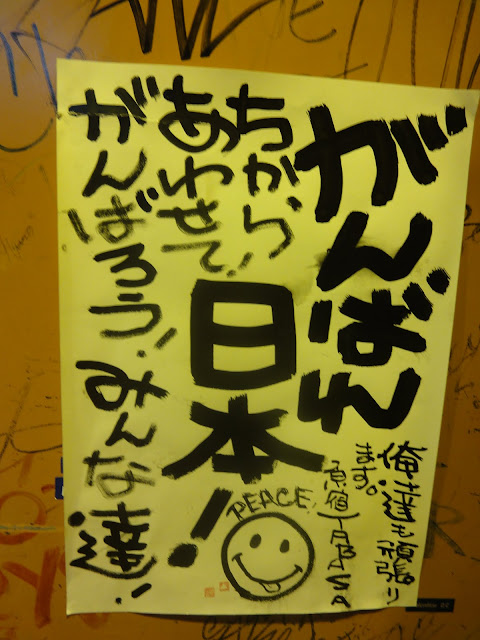 がんばれ
日本!
ちから、
あわせて!
がんばろう!みんな達!
俺達も頑張り
ます。
原宿 TABASA
PEACE!